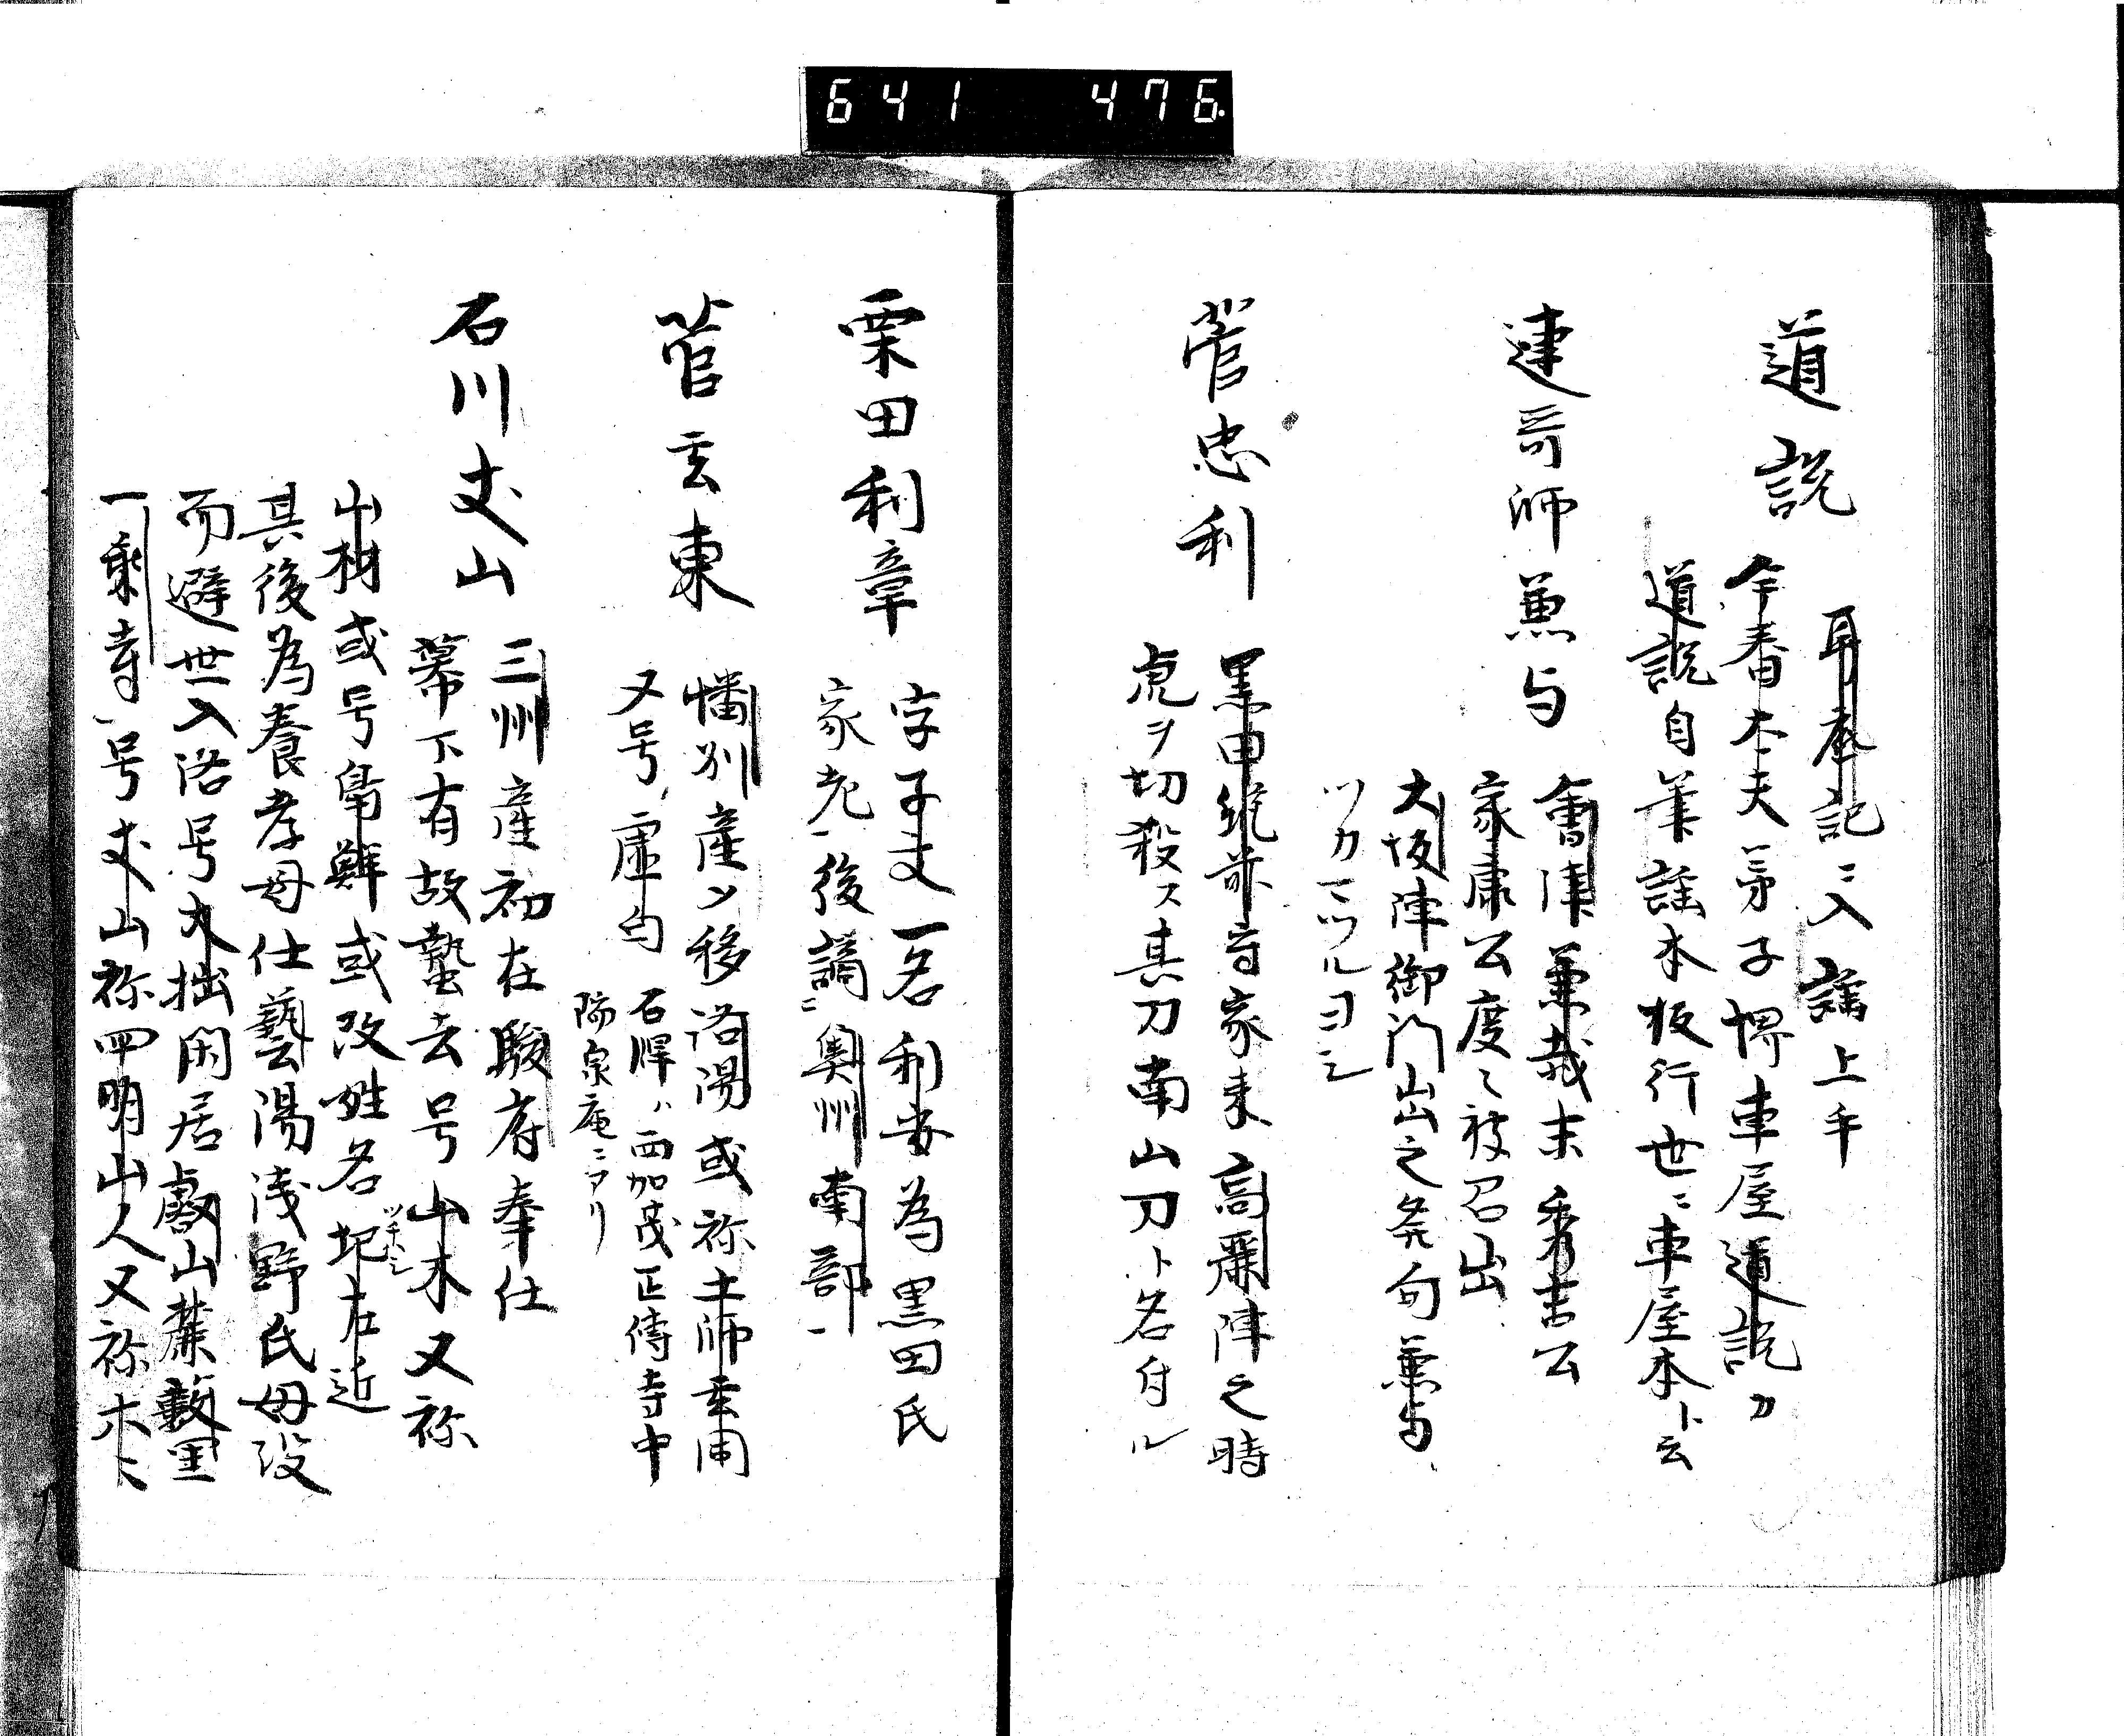 641 476
道説
耳底記ニ入謡上手
今春太夫弟子堺車屋道説カ
道説自筆謡本板行世ニ車屋本ト云
連哥師兼与
會津兼載末秀吉公
家康公度々被召出
大坂陣御門出之発句兼与
ツカマツルヨシ
菅忠利
黒田筑前守家来高麗陣之時
虎ヲ切殺ス其刀南山刀ト名付ル
栗田利章
字子丈一名利安為黒田氏
家老後謫ニ奥州南部
菅玄東
幡州産ノ移洛陽或称土師玄甫
又号虚白
石塔ハ西加茂正傳寺中
陽泉庵ニアリ
石川丈山
三州産初在駿府奉仕
幕下有故蟄去号山木又称
山材或号鳧鮮或改姓名圯左近
其後為養孝母仕藝陽浅野氏母没
而避世入洛号大拙閑居叡山麓藪里
一乗寺号丈山称四明山人又称六々